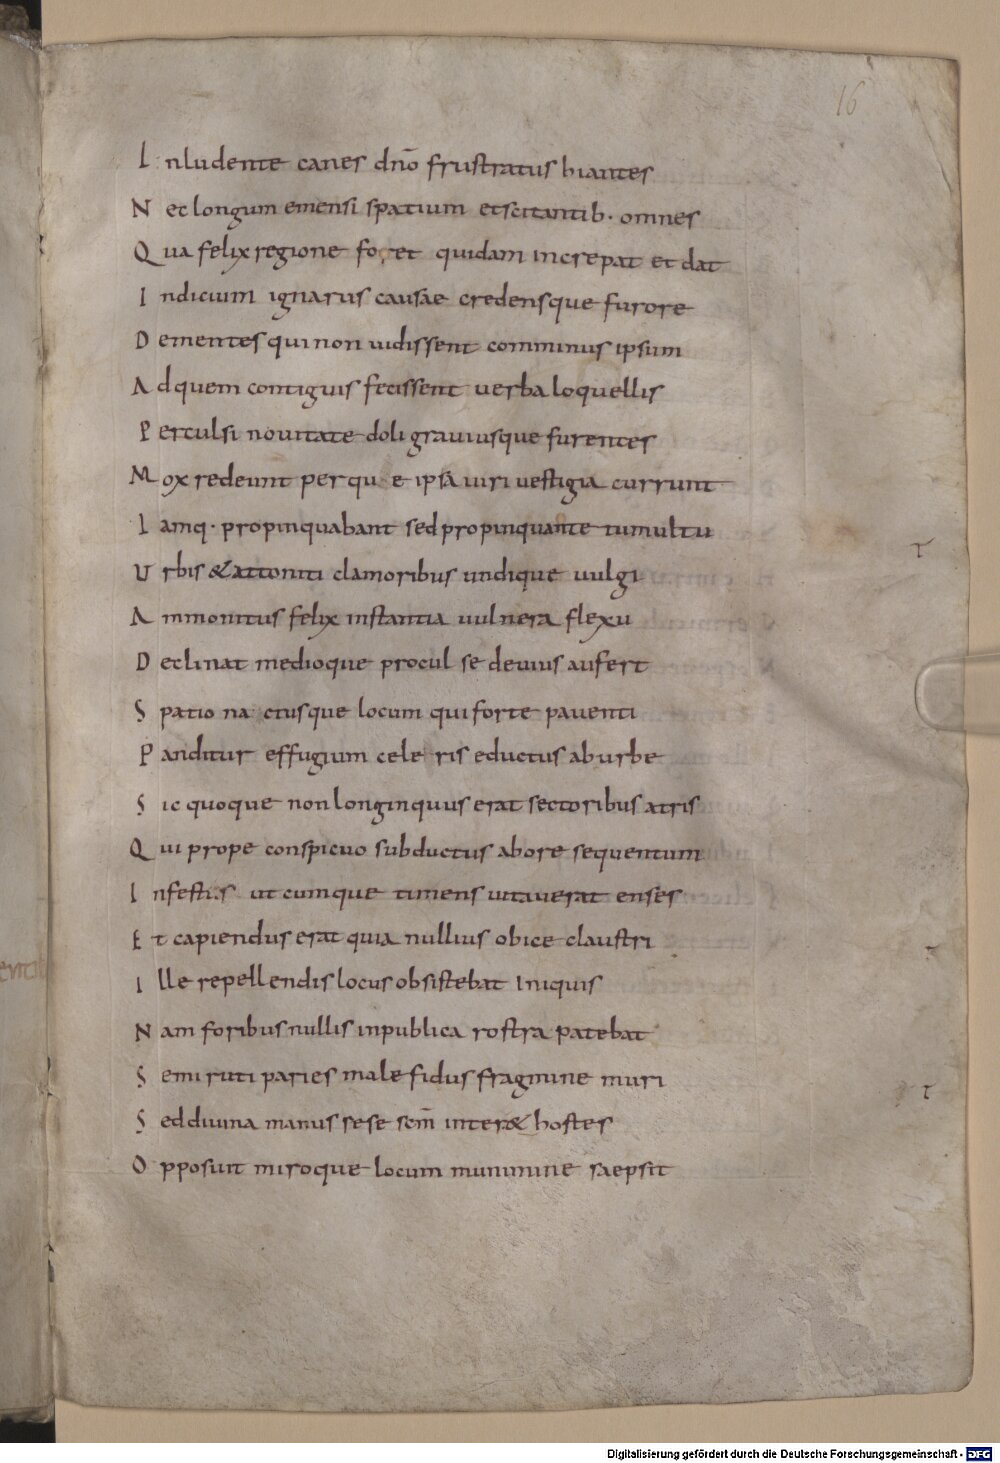 16
Inludente canes dnō frustratus hiantes
Nec longum emensi spatium etscitantib· omnes
Qua felix regione foret quidam increpat et dat
Indicium ignarus causae credensque furore
Dementes qui non uidissent comminus ipsum
Ad quem contiguis fecissent uerba loquellis
Perculsi nouitate doli grauiusque furentes
Mox redeunt per que ipsa uiri uestigia currunt
Iamq· propinquabant sed propinquante tumultu
Urbis & attoniti clamoribus undique uulgi
Ammonitus felix instantia uulnera flexu
Declinat medioque procul se deuius aufert
Spatio nactusque locum qui forte pauenti
Panditur effugium celeris eductus ab urbe
Sic quoque non longinquus erat sectoribus atris
Qui prope conspicuo subductus abore sequentum
Infestis utcumque timens uitauerat enses
Et capiendus erat quia nullius obice claustri
Ille repellendis locus obsistebat Iniquis
Nam foribus nullis inpublica rostra patebat
Semiruti paries male fidus fragmine muri
Sed diuina manus sese scm̄ inter& hostes
Opposuit miroque locum munimine saepsit
Digitalisierung gefördert durch die Deutsche Forschungsgemeinschaft - DFG